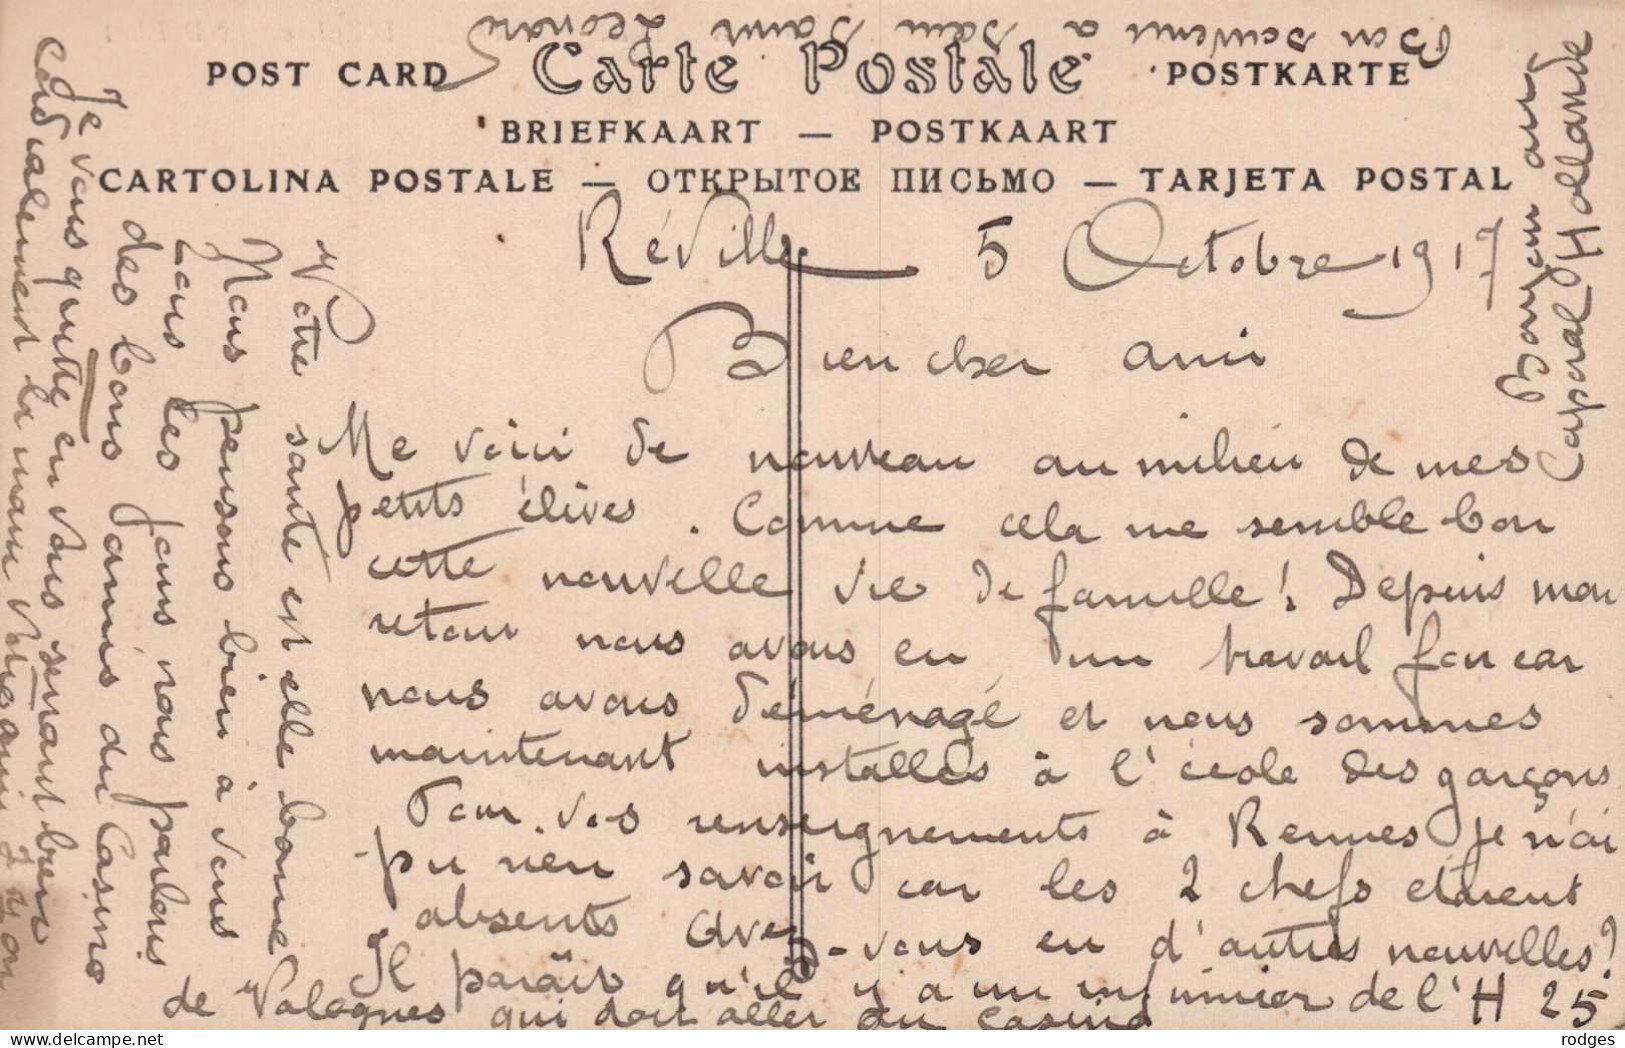 POST CARD Carte Postale POSTKARTE
BRIEFKAART — POSTKAART
CARTOLINA POSTALE — ОТКРЫТОЕ ПИСЬМО — TARJETA POSTAL
Réville 5 Octobre 1917
Bien cher ami
Me voici de nouveau au milieu de mes
petits élèves. Comme cela me semble bon
cette nouvelle vie de famille! Depuis mon
retour nous avons eu un travail fou car
nous avons déménagé et nous sommes
maintenant installés à l'école des garçons
Pour vos renseignements à Rennes je n'ai
pu rien savoir car les 2 chefs étaient
absents Avez-vous eu d'autres nouvelles?
Il paraît qu'il y a un infirmier de l'H 25
de Valognes qui doit aller au casino
Votre santé est elle bonne
Nous pensons bien à vous
Tous les jours nous parlons
des bons amis du Casino
Je vous quitte en vous serrant bien
cordialement la main Votre ami
Bonjour aux
Caporal Hollande
Bon souvenir à Saint Leonard